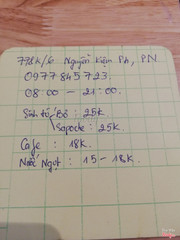 778k/6 Nguyễn Kiệm P4, PN
0977845723.
08:00 – 21:00.
Sinh tố Bơ : 25k
Sapoche : 25k.
Cafe : 18k.
Nước Ngọt : 15 - 18k.